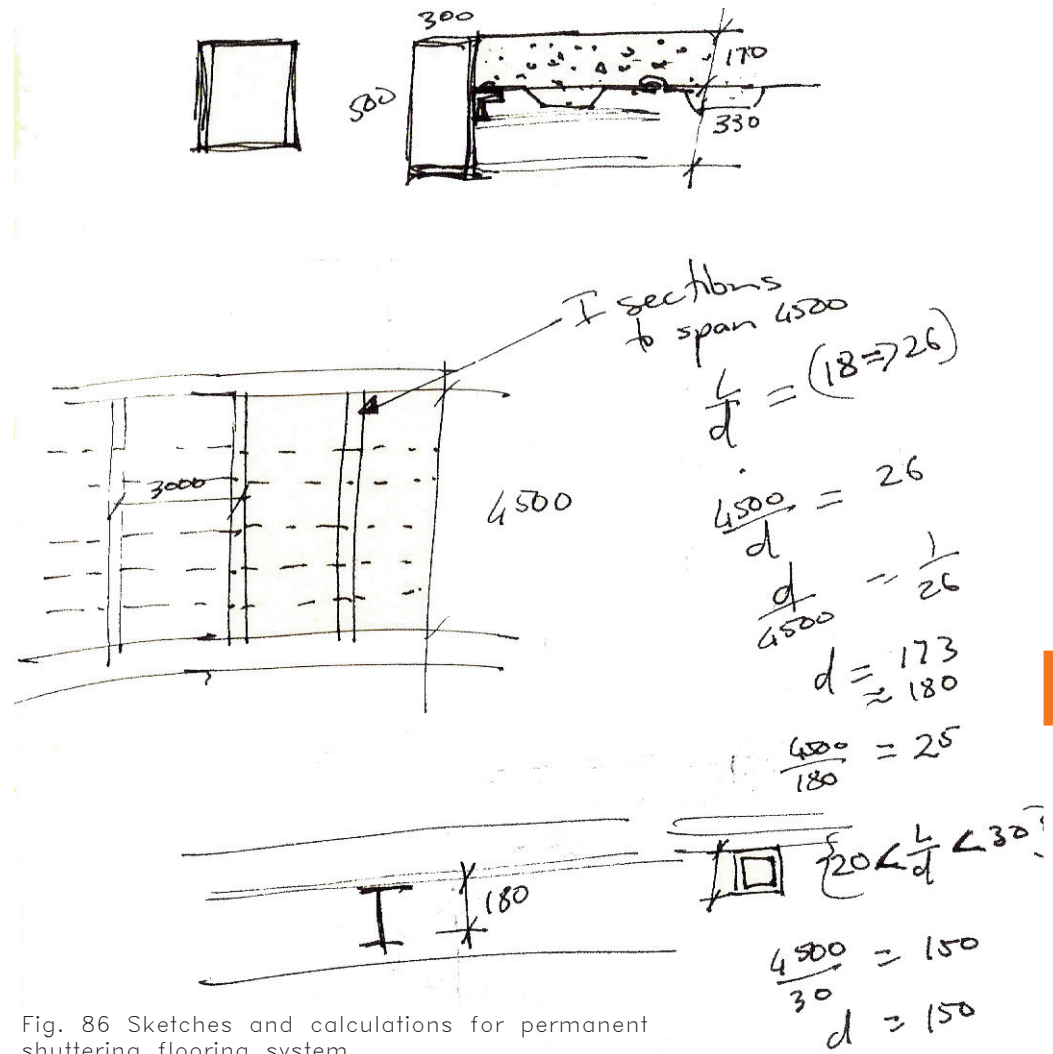 300
500
170
330
I sections
to span 4500
L/d = (18=>26)
3000
4500
4500/d = 26
d/4500 = 1/26
d = 173
≈ 180
4500/180 = 25
180
{20<L/d<30}
4500/30 = 150
d = 150
Fig. 86 Sketches and calculations for permanent
shuttering flooring system